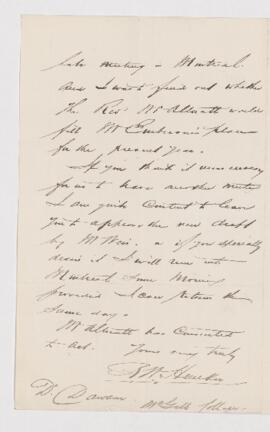 late meeting in Montreal.
and I want to find out whether
the Rev. Mr
fill Mr place
for the present Year.
If you think it unnecessary
for us to have another meeting
I am quite Content to leave
You to approve the new draft
by Mr Weir. or if you specially
desire it I will run into
Montreal Some Morning
provided I can return the
same day.
Mr has Consented
to act.
Yours very truly
R W Heneker
Dr Dawson
McGill College.